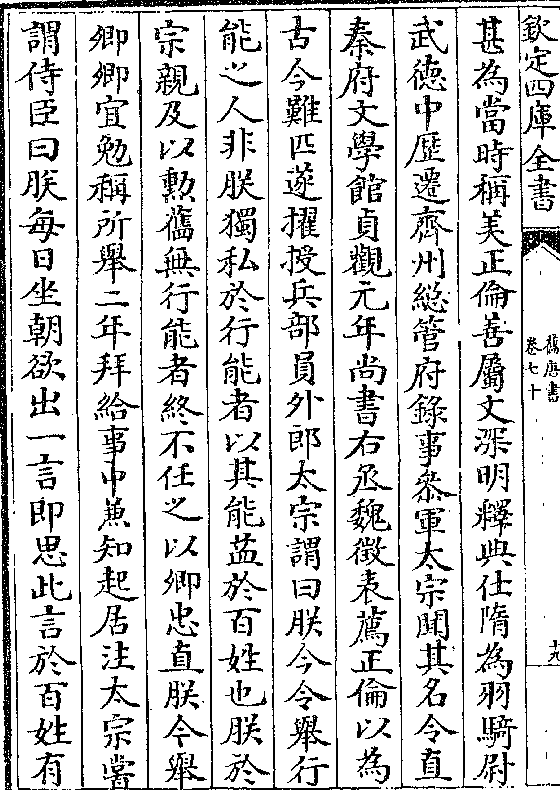 欽定四庫全書
舊唐書
卷七十
十九
甚為當時稱美正倫善屬文深明釋典仕隋為羽騎尉
武德中歷遷齊州總管府錄事叅軍太宗聞其名令直
秦府文學館貞觀元年尚書右丞魏徵表薦正倫以為
古今難匹遂擢授兵部員外郎太宗謂曰朕今令舉行
能之人非朕獨私於行能者以其能益於百姓也朕於
宗親及以勲舊無行能者終不任之以卿忠直朕今舉
卿卿宜勉稱所舉二年拜給事中兼知起居注太宗嘗
謂侍臣曰朕每日坐朝欲出一言即思此言於百姓有